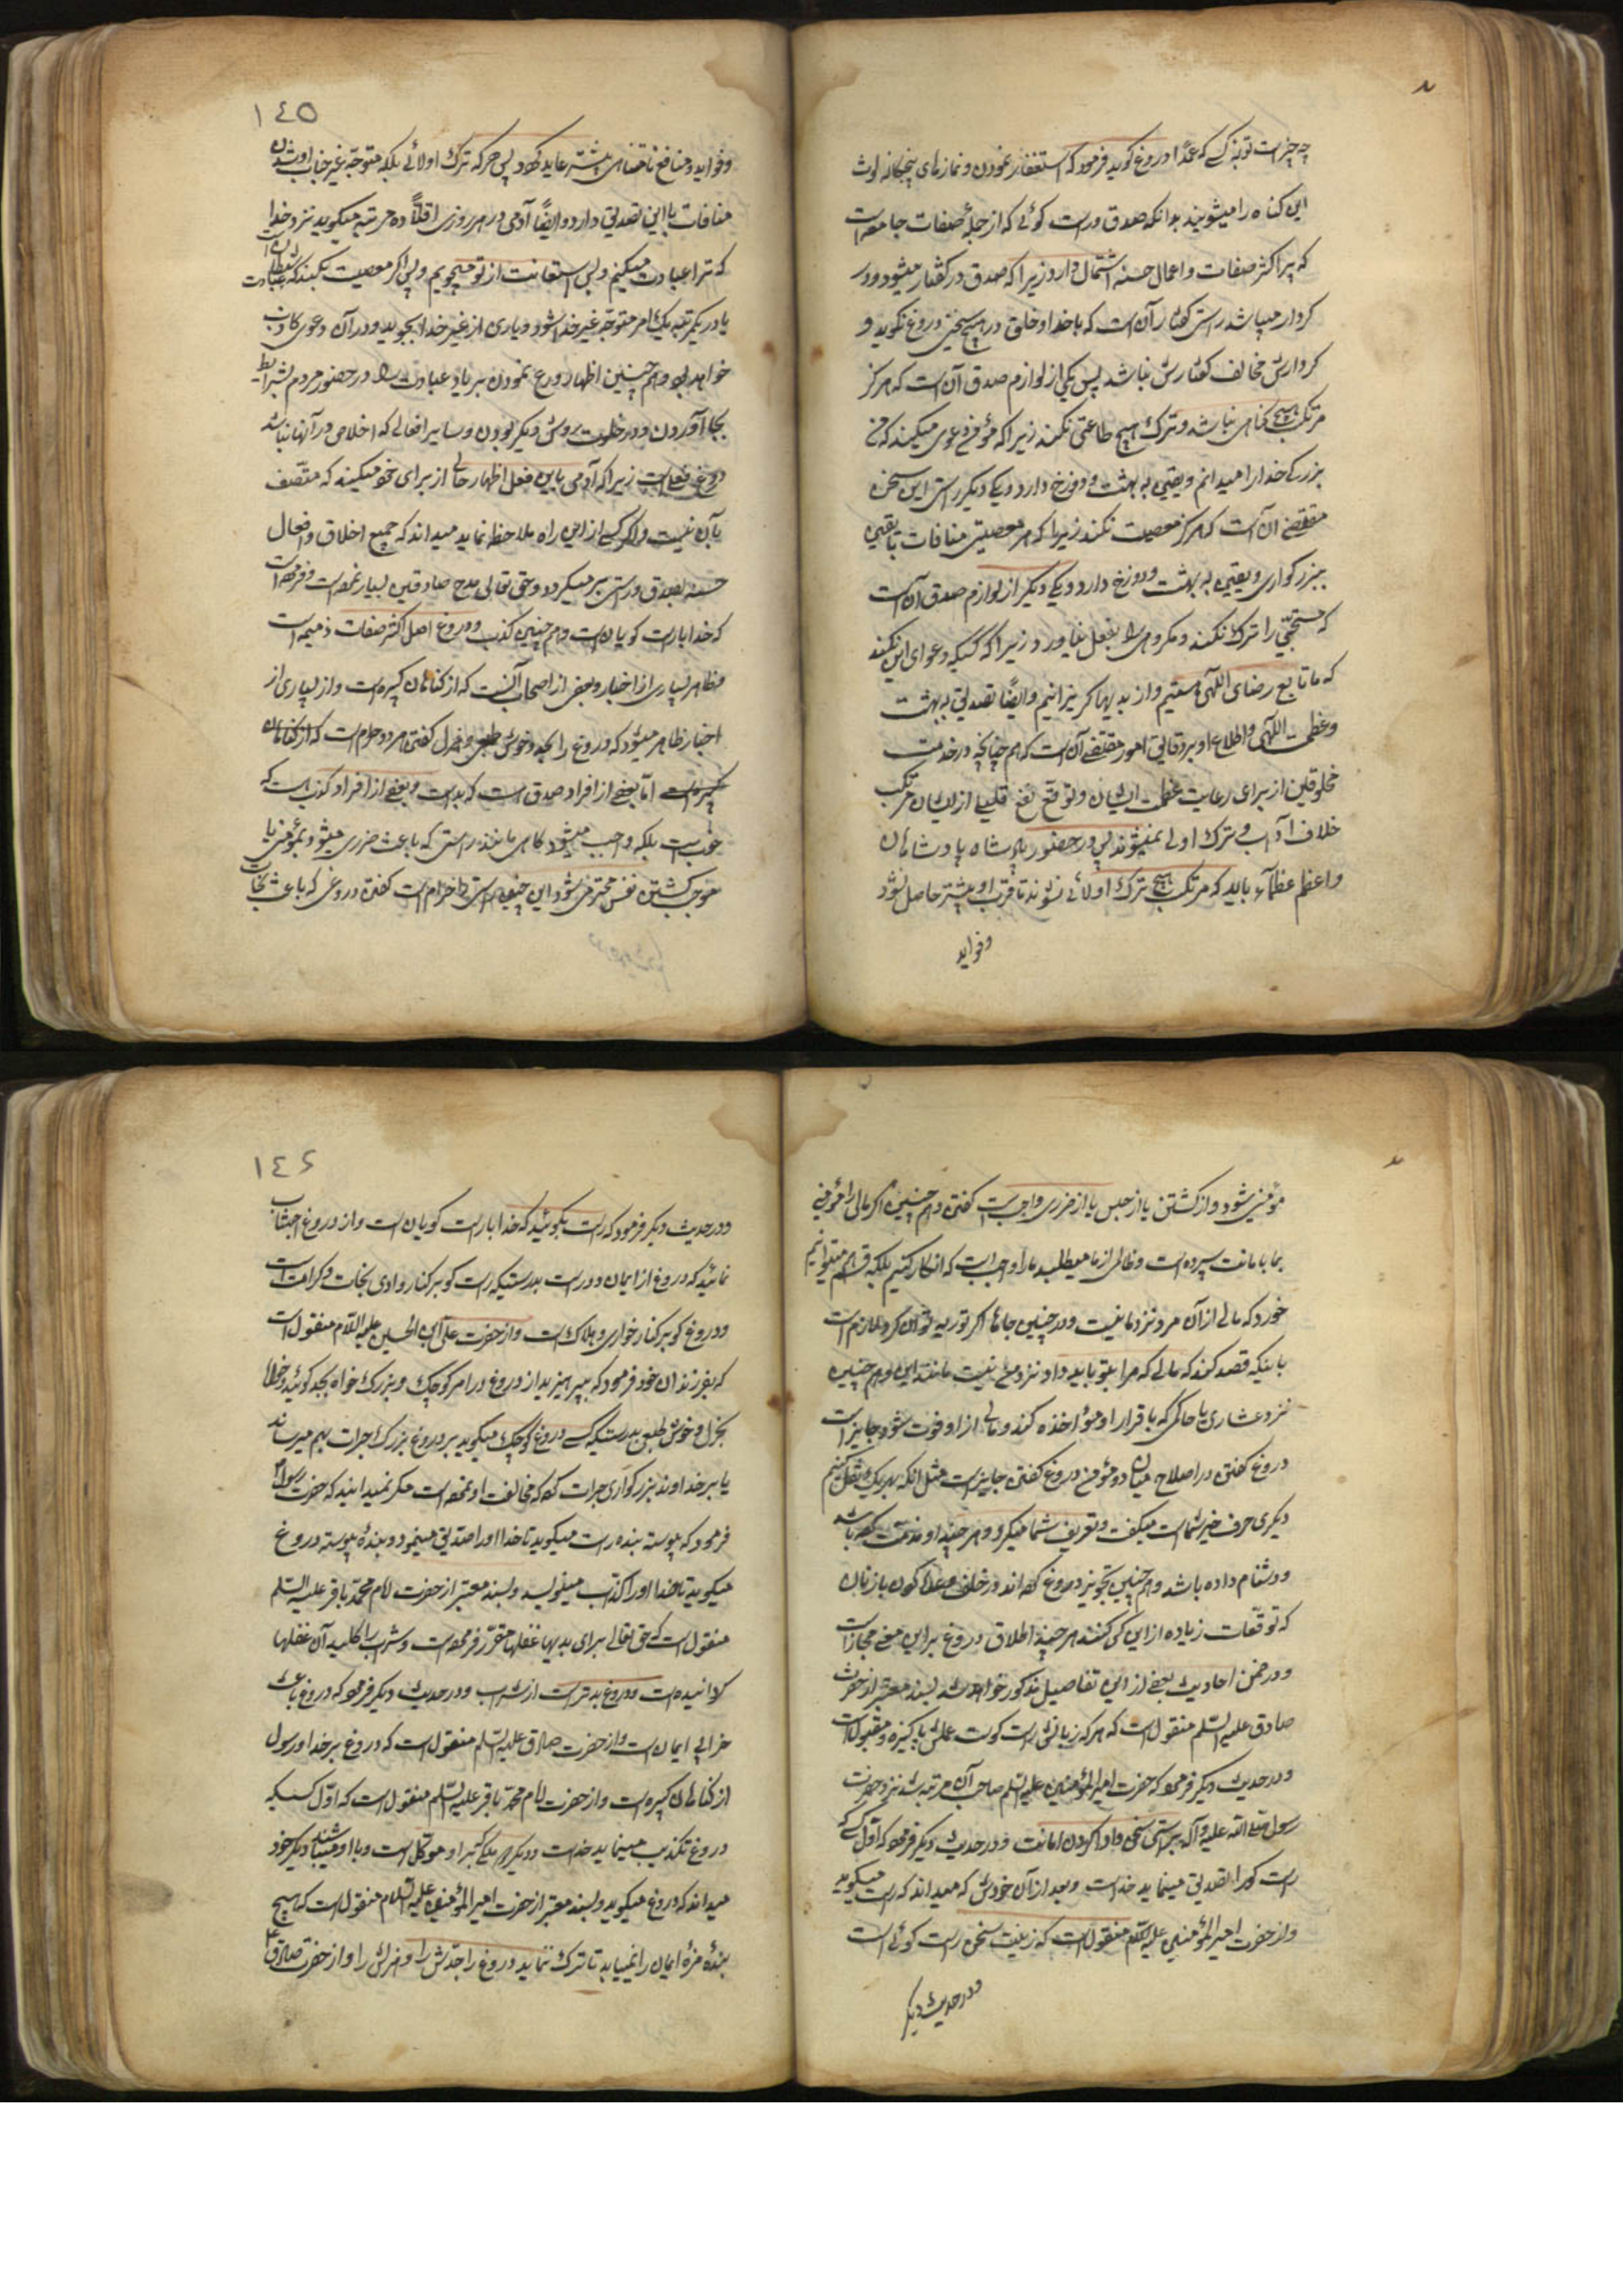 چه چیز است توبهٔ کسی که عمداً دروغ گوید فرمود که استغفار نمودن و نمازهای پنجگانه لوث
این گناه را میشویند بدانکه صدق و راست گوئی که از جملهٔ صفات جامعه است
که بر اکثر صفات و اعمال حسنه اشتمال دارد زیرا که صدق در گفتار میشود و در
کردار میباشد راستی گفتار آن است که با خدا و خلق در هیچ سخنی دروغ نگوید و
کردارش مخالف گفتارش نباشد پس یکی از لوازم صدق آن است که هرگز
مرتکب هیچ گناهی نباشد و ترک هیچ طاعتی نکند زیرا که مؤمن دعوی میکند که من
بزرگی خدا را میدانم و یقین به بهشت و دوزخ دارد و یکی دیگر راستی این سخن
مقتضی آن است که هرگز معصیت نکند زیرا که هر معصیتی منافات با یقین
ببزرگواری و یقین به بهشت و دوزخ دارد و یکی دیگر از لوازم صدق آن است
که مستحبی را ترک نکند و مکروهی را بفعل نیاورد زیرا که کسیکه دعوای این کند
که ما تابع رضای اللهی هستیم و از بدیها گریزانیم و ایضاً تصدیق به بهشت
و عظمت اللهی و اطلاع او بر دقائق امور مقتضی آن است که هم چنانچه در خدمت
مخلوقین از برای رعایت عظمت ایشان و توقع نفع قلیل از ایشان مرتکب
خلاف آداب و ترک اولی نمیشوند پس در حضور پادشاه پادشاهان
و اعظم عظماء باید که مرتکب هیچ ترک اولائی نشوند تا قرب او بیشتر حاصل شود
و فواید
١٤٥
و فواید و منافع نامتناهی بیشتر عاید گردد پس هر که ترک اولائی بلکه متوجه غیر جناب او شدن
منافات با این تصدیق دارد و ایضاً آدمی در هر روزی اقلاً ده مرتبه میگوید نزد خدا
که ترا عبادت میکنیم و بس و استعانت از تو میجوییم و بس اگر معصیت بکند که عبادت شیطان است
یا در یکمرتبه یک امر متوجه غیر خدا شود و یاری از غیر خدا بجوید و در آن دعوی کاذب
خواهد بود و هم چنین اظهار ورع نمودن بر یاد عبادت را در حضور مردم بشرایط
بجا آوردن و در خلوت بروش دیگر بودن و سایر افعالی که اخلاص در آنها نباشد
دروغ فعلی است زیرا که آدمی باین فعل اظهار حالی از برای خود میکند که متصف
بآن نیست و اگر کسی از این راه ملاحظه نماید میداند که جمیع اخلاق و افعال
حسنه بصدق و راستی بر میگردد و حق تعالی مدح صادقین بسیار نموده است و فرموده است
که خدا با راست گویان است و هم چنین کذب و دروغ اصل اکثر صفات ذمیمه است
مظاهر بسیاری از اخبار و بعضی از اصحاب آنست که از گناهان کبیره است و از بسیاری از
اخبار ظاهر میشود که دروغ را بجد و خوش طبعی و هزل گفتن هر دو حرام است که از گناهان
کبیره است امّا بعضی از افراد صدق است که بد است و بعضی از افراد کذب است که
خوب است بلکه واجب میشود گاهی مانند راستی که باعث ضرری میشود بمؤمن یا
موجب کشتن نفس محترمی شود این چنین راستی حرام است گفتن و دروغی که باعث نجات
مؤمنی شود از کشتن یا از حبس یا از ضرری واجب است گفتن و هم چنین اگر مالی را مؤمنی
بما بامانت سپرده است و ظالمی از ما میطلبد ما را واجب است که انکار کنیم بلکه قسم هم میتوانیم
خورد که مالی از آن مرد نزد ما نیست و در چنین جاها اگر توریه توان کرد لازم است
باینکه قصد کند که مالی که مرا بتو باید داد نزد من نیست مانند این و هم چنین
نزد عشاری یا حاکمی که باقرار او مؤاخذه کند و مالی از او فوت شود جایز است
دروغ گفتن در اصلاح میان دو مؤمن دروغ گفتن جایز است مثل آنکه بهر یک نقل کنیم
دیگری حرف خیر شما است میگفت و تعریف شما میکرد و هر چند او مذمت کرده باشد
و دشنام داده باشد و هم چنین تجویز دروغ کرده اند در خلف وعده کردن با زنان
که توقعات زیاده از این کی کنند هر چند اطلاق دروغ بر این معنی مجاز است
و در ضمن احادیث بعضی از این تفاصیل مذکور خواهد شد بسند معتبر از حضرت
صادق علیه السلم منقول است که هر که زبانش راست گوست عملش پاکیزه و مقبول است
و در حدیث دیگر فرمود که حضرت امیر المؤمنین علیه السلم صاحب آن مرتبه شد نزد حضرت
رسول صلی الله علیه و آله براستی سخن و ادا کردن امانت و در حدیث دیگر فرمود که اول کسی که
راست گو را تصدیق مینماید خداست و بعد از آن خودش که میداند که راست میگوید
و از حضرت امیر المؤمنین علیه السلم منقول است که زینت سخن راست گوئی است
و در حدیث دیگر
١٤٦
و در حدیث دیگر فرمود که راست بگوئید که خدا با راست گویان است و از دروغ اجتناب
نمائید که دروغ از ایمان دور است بدرستیکه راست گو بر کنار وادی نجات و کرامت است
و دروغ گو بر کنار خواری و هلاک است و از حضرت علی ابن الحسین علیه السلام منقول است
که بفرزندان خود فرمود که بپرهیزید از دروغ در امر کوچک و بزرگ خواه بجد گوئید و خواه
بهزل و خوش طبعی بدرستیکه کسی دروغ کوچک میگوید بر دروغ بزرگ جرات بهم میرساند
یا بر خداوند بزرگواری جرات کرده که مخالفت او نموده است مگر نمیدانید که حضرت رسول
فرمود که پیوسته بنده راست میگوید تا خدا او را صدیق مینمود و بندهٔ پیوسته دروغ
میگوید تا خدا او را کذاب مینویسد و بسند معتبر از حضرت امام محمد باقر علیه السلم
منقول است که حق تعالی برای بدیها قفلها مقرر فرموده است و شراب را کلید آن قفلها
گردانیده است و دروغ بدتر است از شراب و در حدیث دیگر فرمود که دروغ باعث
خرابی ایمان است و از حضرت صادق علیه السلم منقول است که دروغ بر خدا و رسول
از گناهان کبیره است و از حضرت امام محمد باقر علیه السلم منقول است که اول کسیکه
دروغ تکذیب مینماید خداست و دیگر ملکی که بر او موکل است و با او میباشند دیگر خود
میداند که دروغ میگوید و بسند معتبر از حضرت امیر المؤمنین علیه السلام منقول است که هیچ
بندهٔ مزهٔ ایمان را نمییابد تا ترک ننماید دروغ را جدش را و هزلش را و از حضرت صادق ع